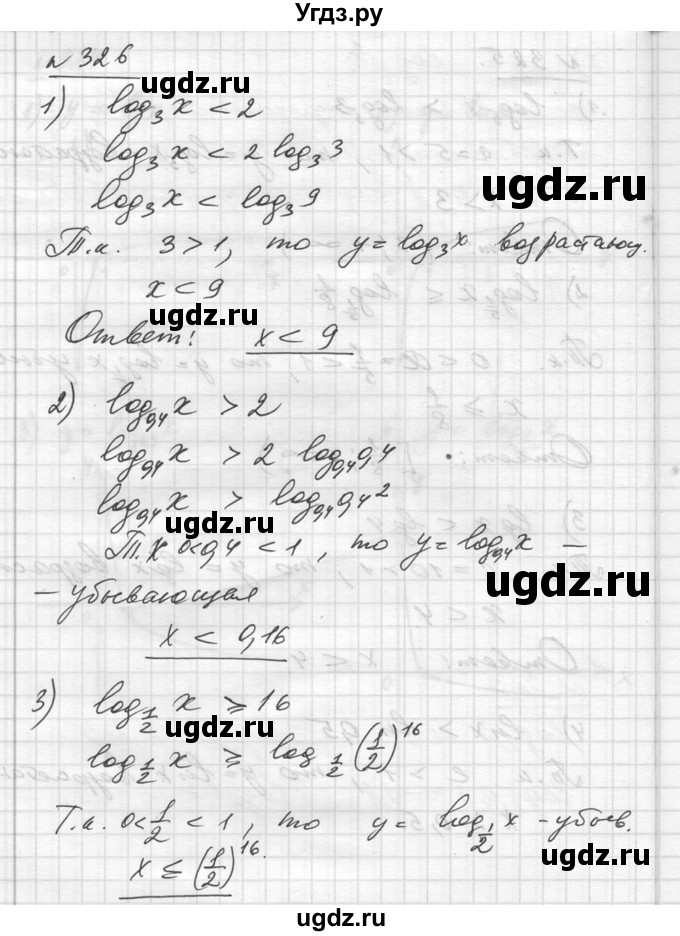 Угдз.ру
N 326
ugdz.ru
1) log₃ x < 2
log₃ x < 2 log₃ 3
ugdz.ru
log₃ x < log₃ 9
ugdz.ru
Т.к. 3 > 1, то y = log₃ x возрастающ.
x < 9
ugdz.ru
Ответ: x < 9
2) log₀,₄ x > 2
log₀,₄ x > 2 log₀,₄ 0,4
log₀,₄ x > log₀,₄ 0,4²
ugdz.ru
Т.к 0<0,4 < 1, то y = log₀,₄ x –
ugdz.ru
– убывающая
x < 0,16
3) log_{1/2} x ≥ 16
ugdz.ru
log_{1/2} x ≥ log_{1/2} (1/2)¹⁶
Т.к. 0< 1/2 < 1, то y = log_{1/2} x - убыв.
x ≤ (1/2)¹⁶.
ugdz.ru
ugdz.ru